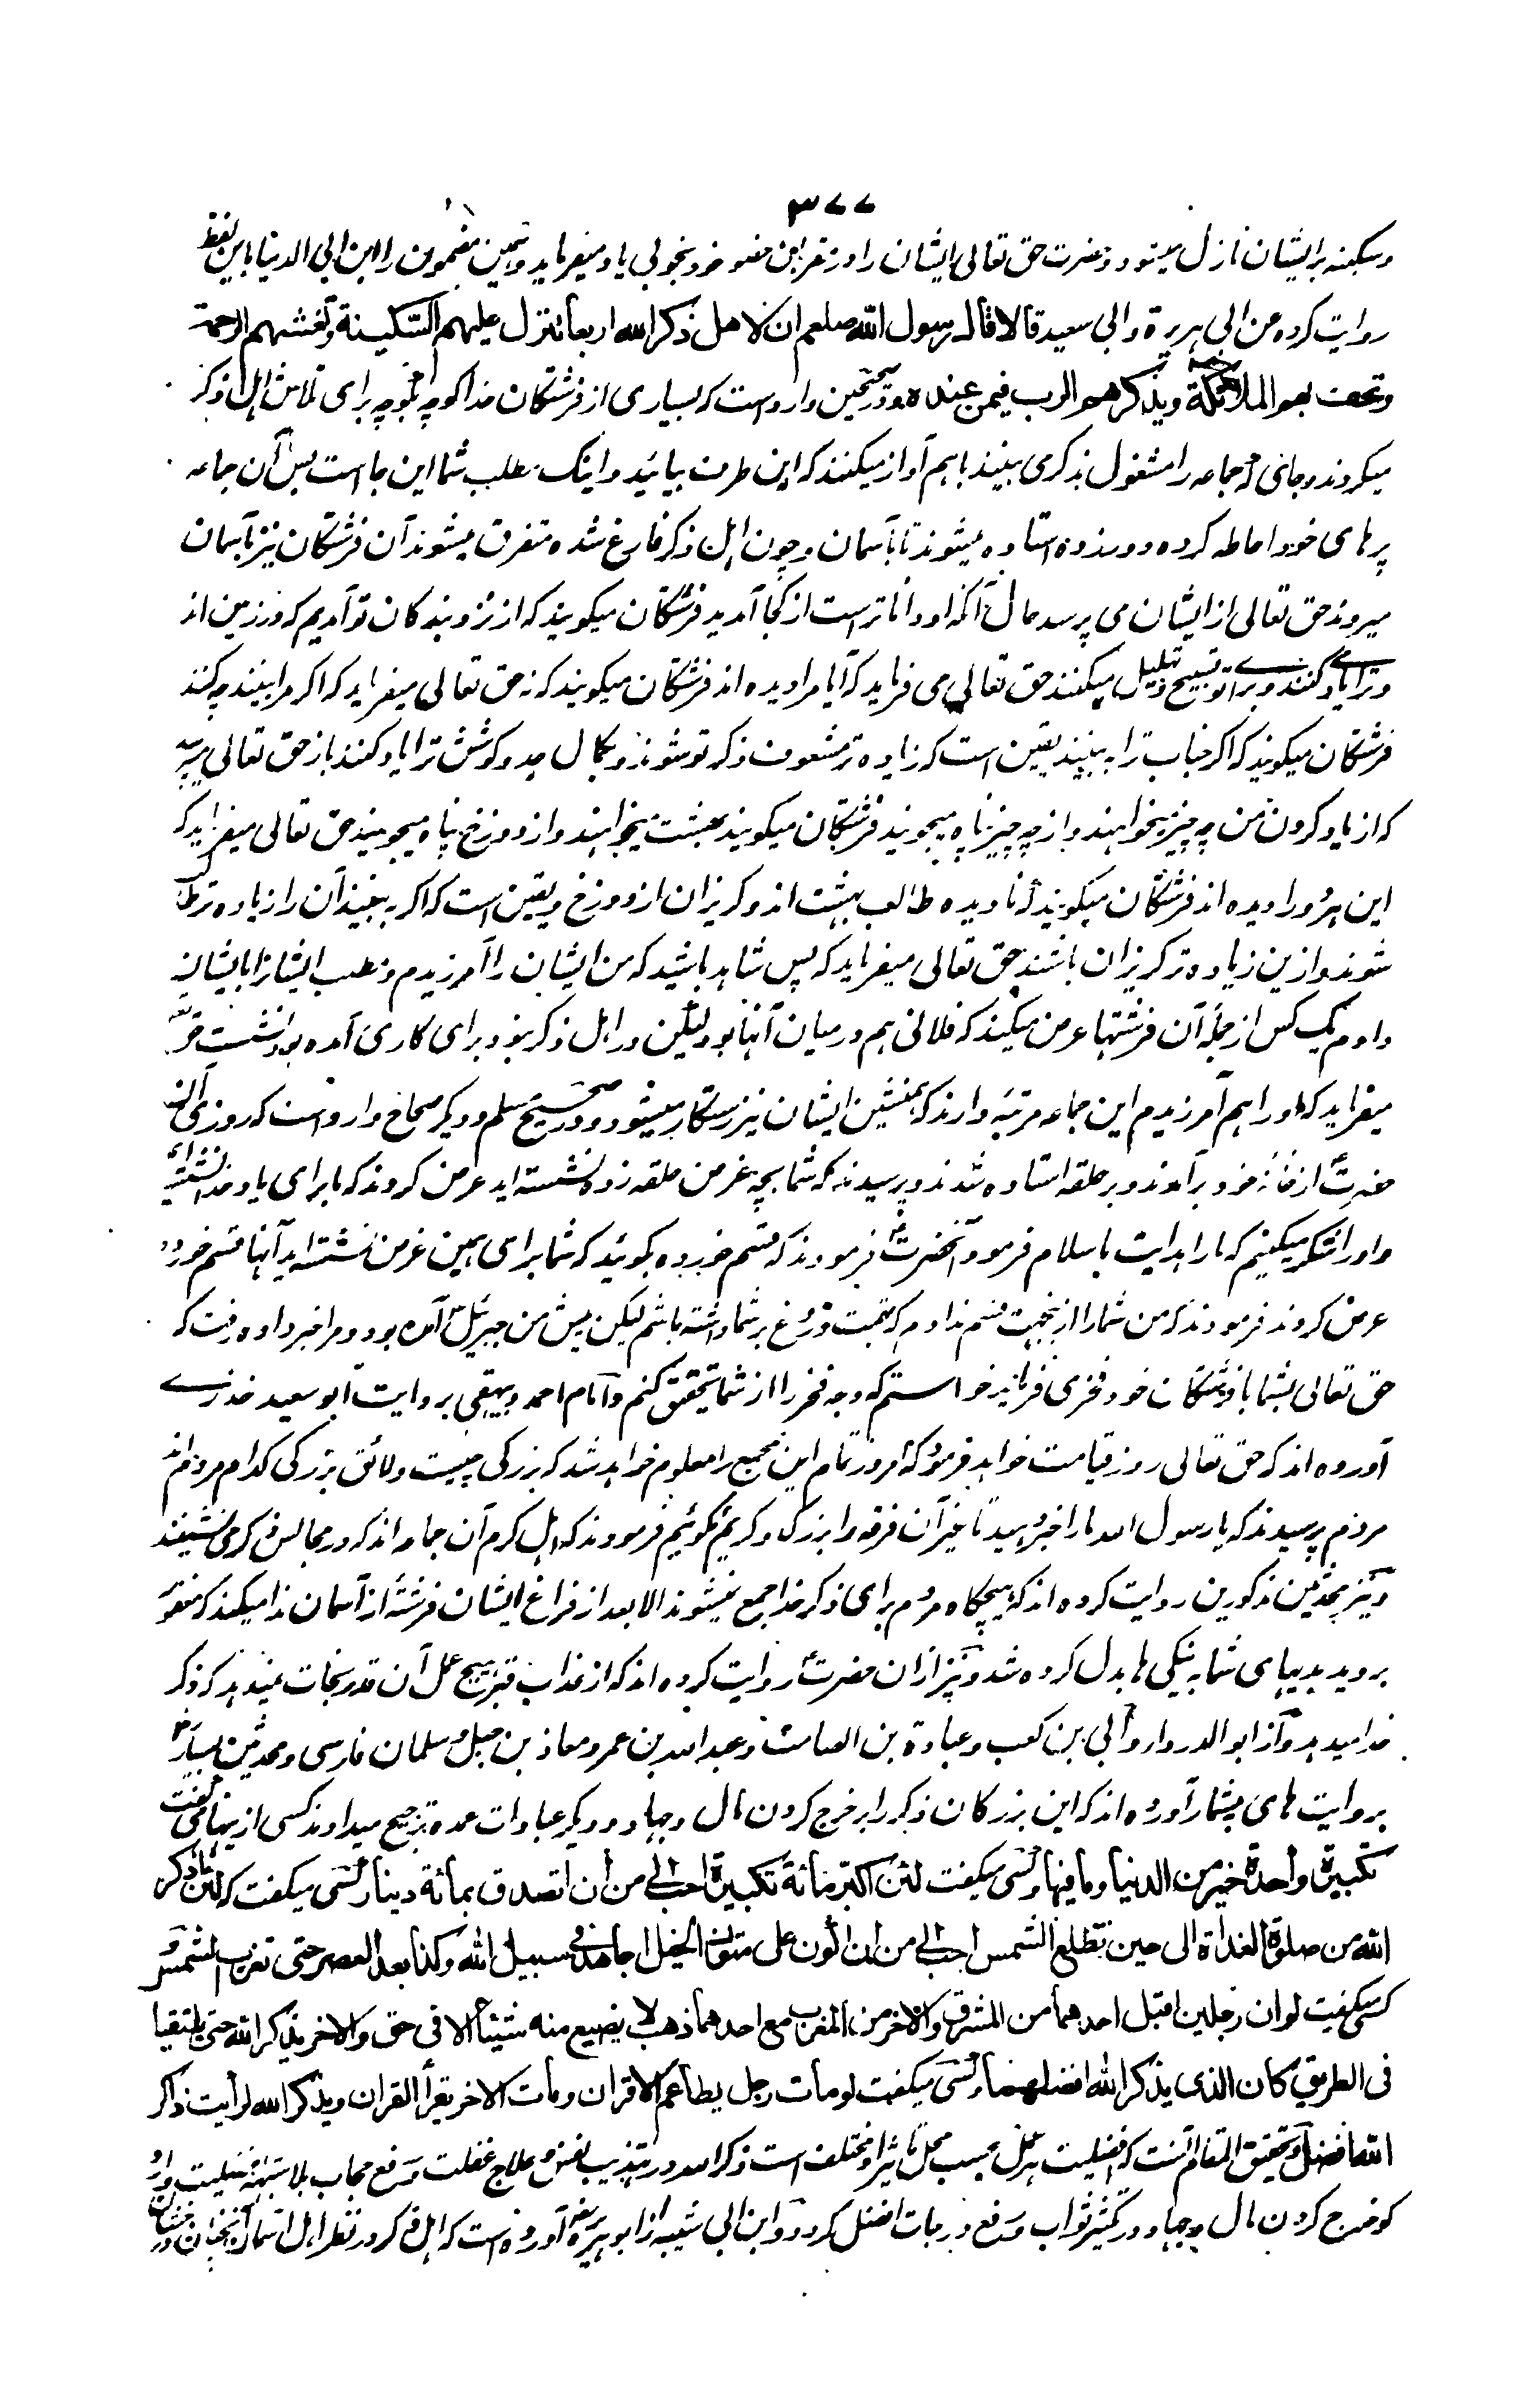 ٣٧٧
وسکینه بر ایشان نازل میشود و حضرت حق تعالی ایشان را در مقربین حضور خود بخوبی یاد میفرماید و همین مضمون را ابن ابی الدنیا باین لفظ
روایت کرده عن ابی هریرة وابی سعید قالا قال رسول الله صلعم ان لاهل ذکر الله اربعا تنزل علیهم السکینة وتغشهم الرحمة
وتحف بهم الملائکة ویذکرهم الرب فیمن عنده و در صحیحین وارد است که بسیاری از فرشتگان خدا کوچه بکوچه برای تلاش اهل ذکر
میگردند و جائی که جماعه را مشغول بذکر می بینند باهم آواز میکنند که این طرف بیائید و اینک مطلب شما این جا است پس آن جماعه
پرهای خود احاطه کرده دور زده استاده میشوند تا بآسمان و چون اهل ذکر فارغ شده متفرق میشوند آن فرشتگان نیز بآسمان
میروند حق تعالی از ایشان می پرسد حال آنکه او داناتر است از کجا آمدید فرشتگان میگویند که از نزد بندگان تو آمدیم که در زمین اند
و ترا یاد کنند و برای تو تسبیح و تهلیل میکنند حق تعالی می فرماید که آیا مرا دیده اند فرشتگان میگویند که نه حق تعالی میفرماید که اگر مرا بینند چه کنند
فرشتگان میگویند که اگر جناب ترا به بینند یقین است که زیاده تر مشعوف ذکر تو شوند و بکمال جد و کوشش ترا یاد کنند باز حق تعالی میپرسد
که از یاد کردن من چه چیز میخواهند و از چه چیز پناه میجویند فرشتگان میگویند بهشت میخواهند و از دوزخ پناه میجویند حق تعالی میفرماید که
این هر دو را دیده اند فرشتگان میگویند که نادیده طالب بهشت اند و گریزان از دوزخ و یقین است که اگر به بینند آن را زیاده تر طالب
شوند و ازین زیاده تر گریزان باشند حق تعالی میفرماید که پس شاهد باشید که من ایشان را آمرزیدم و مطلب ایشانرا بایشان
دادم یک کس از جمله آن فرشتها عرض میکند که فلانی هم در میان آنها بود لیکن در اهل ذکر نبود برای کاری آمده بود نشست حق تعالی
میفرماید که او را هم آمرزیدم این جماعه مرتبه دارند که همنشین ایشان نیز رستگار میشود و در صحیح مسلم و دیگر صحاح وارد است که روزی آن
حضرت از خانه خود برآمدند و بر حلقه استاده شدند و پرسیدند که شما بچه غرض حلقه زده نشسته اید عرض کردند که ما برای یاد خدا نشسته ایم
و او را شکر میکنیم که ما را هدایت باسلام فرمود آنحضرت فرمودند که قسم خورده بگوئید که شما برای همین غرض نشسته اید آنها قسم خورده
عرض کردند فرمودند که من شما را ازینجهت قسم ندادم که تهمت دروغ بر شما داشته باشم لیکن پیش من جبرئیل آمده بود و مرا خبر داده رفت که
حق تعالی بشما با فرشتگان خود فخری فرماید خواستم که وجه فخر را از شما تحقیق کنم و امام احمد و بیهقی بروایت ابو سعید خدری
آورده اند که حق تعالی روز قیامت خواهد فرمود که امروز تمام این مجمع را معلوم خواهد شد که بزرگی چیست و لائق بزرگی کدام مردم اند
مردم پرسیدند که یا رسول الله ما را خبر دهید تا نیز آن فرقه را بزرگ و کریم بگوئیم فرمودند که اهل کرم آن جماعه اند که در مجالس ذکر می نشینند
و نیز محدثین مذکورین روایت کرده اند که هیچگاه مردم برای ذکر خدا جمع نمیشوند الا بعد از فراغ ایشان فرشته از آسمان ندا میکند که مغفور
بروید بدیهای شما به نیکی ها بدل کرده شد و نیز ازان حضرت روایت کرده اند که از عذاب قبر هیچ عمل آن قدر نجات نمیدهد که ذکر
خدا میدهد و از ابو الدرداء و ابی بن کعب و عبادة بن الصامت و عبد الله بن عمر و معاذ بن جبل و سلمان فارسی و محدثین بسیار
بروایت های بیشمار آورده اند که این بزرگان ذکر را بر خرج کردن مال و جهاد و دیگر عبادات عمده ترجیح میدادند کسی ازینها می گفت
تکبیرة واحدة خیر من الدنیا وما فیها و کسی میگفت لئن اکبر مائة تکبیرة احب الی من أن اتصدق بمائة دینار و کسی میگفت که لئن اذکر
الله من صلوة الغداة الی حین تطلع الشمس احب الی من ان اکون علی متون الخیل اجاهد فی سبیل الله وکذا بعد العصر حتی تغرب الشمس و
کسی میگفت لو ان رجلین اقبل احدهما من المشرق والاخر من المغرب مع احدهما ذهب لا یضیع منه شیئا الا فی حق والاخر یذکر الله حتی یلتقیا
فی الطریق کان الذی یذکر الله افضلهما و کسی میگفت لو مات رجل یطاعم الاقران ومات الاخر یقرأ القران ویذکر الله لرأیت ذاکر
الله افضل و تحقیق المقام آنست که افضلیت هر عمل بحسب محل تاثیر او مختلف است ذکر الله در تهذیب نفس و علاج غفلت و رفع حجاب بلا شبهه فضیلت دارد
گو خرج کردن مال و جهاد در تکثیر ثواب و رفع درجات افضل گردد و ابن ابی شیبه از ابو هریره آورده است که اهل ذکر در نظر اهل آسمان